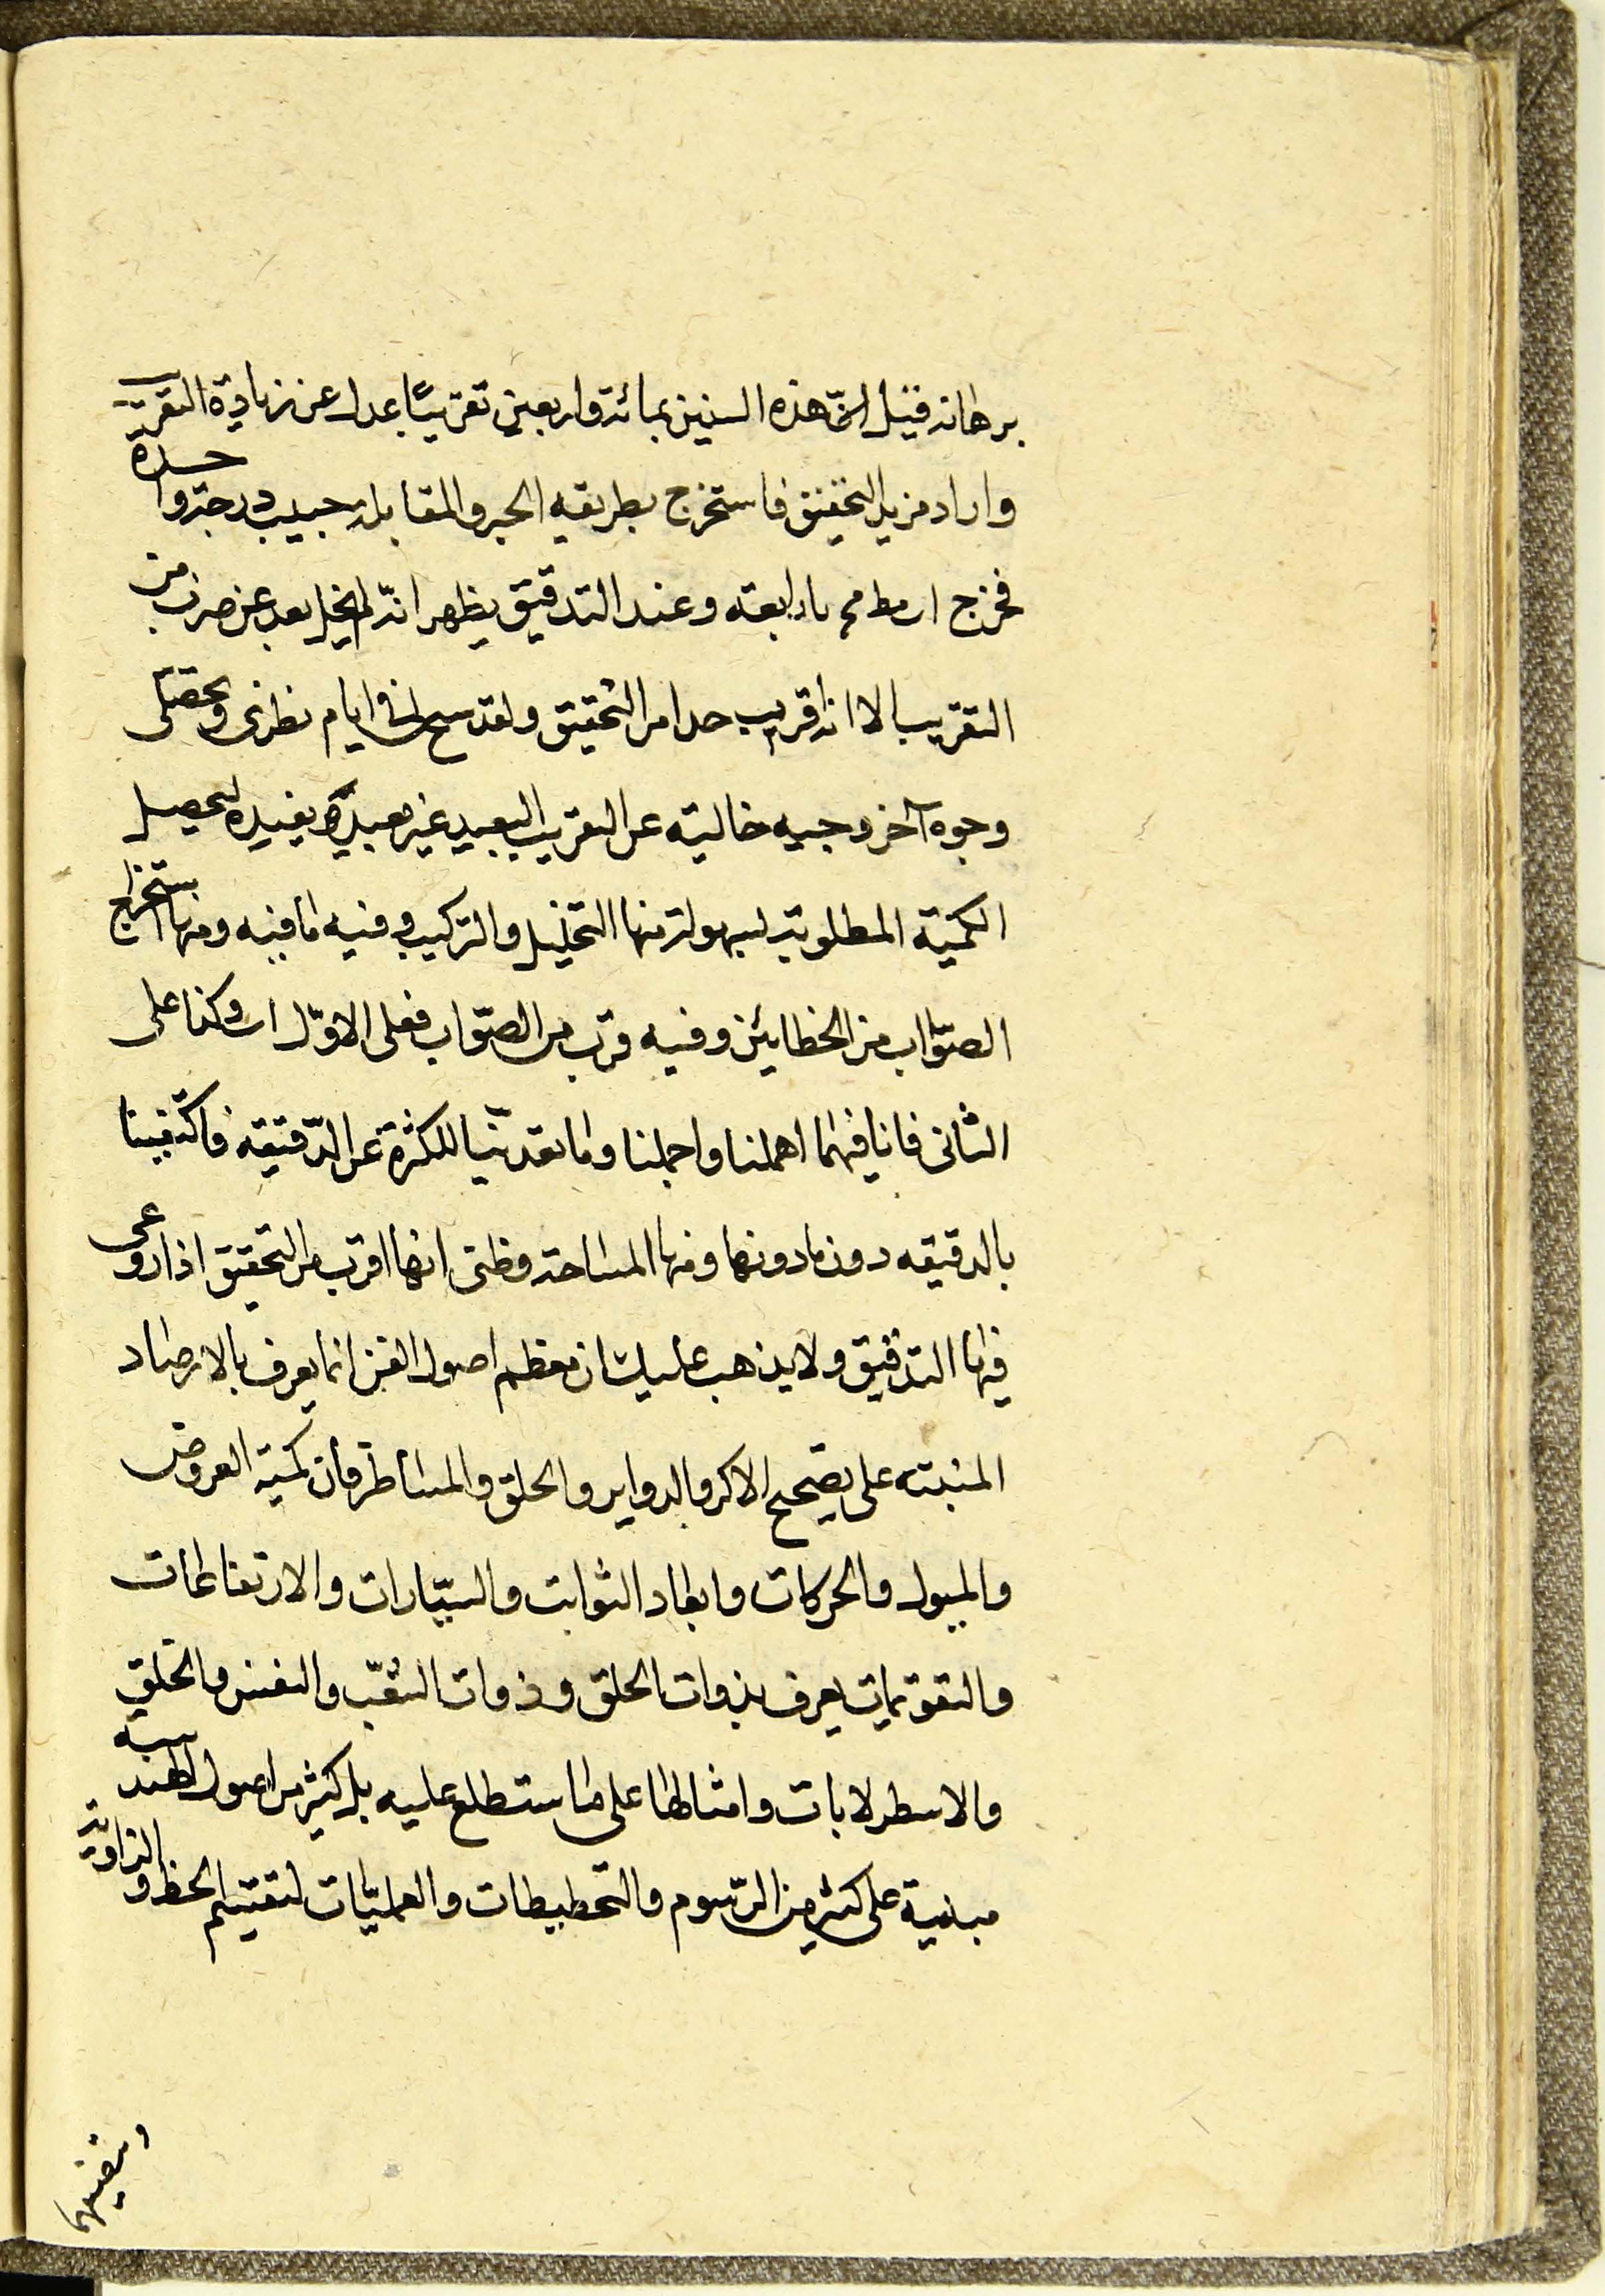 برهانه فقيل ان هذه السنين بمائة واربعين تقريبًا عدل عن زيادة التقريب
واراد مزيد التحقيق فاستخرج بطريقه الجبر والمقابلة جيب درجة واحدة
فخرج ا رابعته وعند التدقيق يظهر انه لم يخل بعد عن ضرب من
التقريب الا انه قريب جدا من التحقيق ولقد سنح لى فى ايام نظرى
وجوه آخر وجيه خاليته عن التقريب البعيد غير بعيدة يفيد تحصيل
الكمية المطلوبة بسهولة منها التحليل والتركيب وفيه ما فيه ومنها استخراج
الصواب من الخطائين وفيه قرب من الصواب فعلى الاول وكذا على
الثانى فانا فيهما اهملنا واجملنا وما تعدينا للكثرة عن الدقيقه فاكتفينا
بالدقيقه دون ما دونها ومنها المساحة وظنى انها اقرب من التحقيق اذا روعى
فيها التدقيق ولا يذهب عليك ان معظم اصول الفن انما يعرف بالارصاد
المبنيته على تصحيح الاكر والدواير والحلق والمساطر فان كمية العروض
والميول والحركات وابعاد الثوابت والسيّارات والارتفاعات
والتقويمات يعرف بذوات الحلق وذوات الثقب والحلق
والاسطرلابات وامثالها على ما ستطلع عليه بل كثير من اصول الهندسة
مبنية على كثير من الرسوم والتخطيطات والعمليّات لتقسيم الخط والزاوية